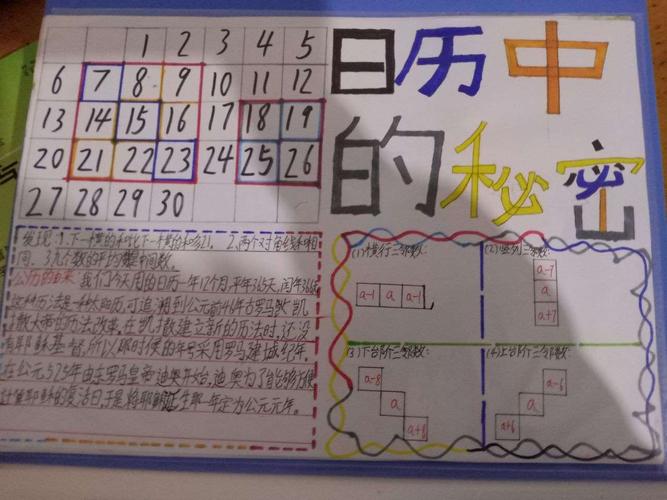 1 2 3 4 5
6 7 8 9 10 11 12
13 14 15 16 17 18 19
20 21 22 23 24 25 26
27 28 29 30
日历中
的秘密
发现:1.下一横的和比下一横的和多21。 2.两个对角线和相
同。3.九个数的平均数是中间数。
公历的由来 我们今天用的日历一年12个月,平年365天,闰年366
这种历法是一种太阳历,可追溯到公元前46年古罗马 凯
撒大帝的历法改革,在凯撒建立新的历法时,还没
有耶稣基督,所以那时候的年号采用罗马建城纪年,
在公元525年由东罗马皇帝迪奥开始,迪奥为了能够方便
计算耶稣的复活日,于是将耶稣诞生那一年定为公元元年。
(1)横行三邻数:
a-1 a a-1
(2)竖列三邻数:
a-7
a
a+7
(3)下台阶三邻数:
a-8
a
a+8
(4)上台阶三邻数:
a-6
a
a+6